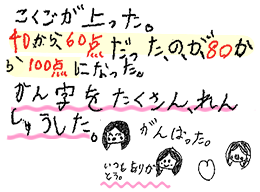 こくごが上った。
40から60点だった、のが80か
ら100点になった。
かん字をたくさん、れん
しゅうした。
がんばった。
いつもありが
とう。